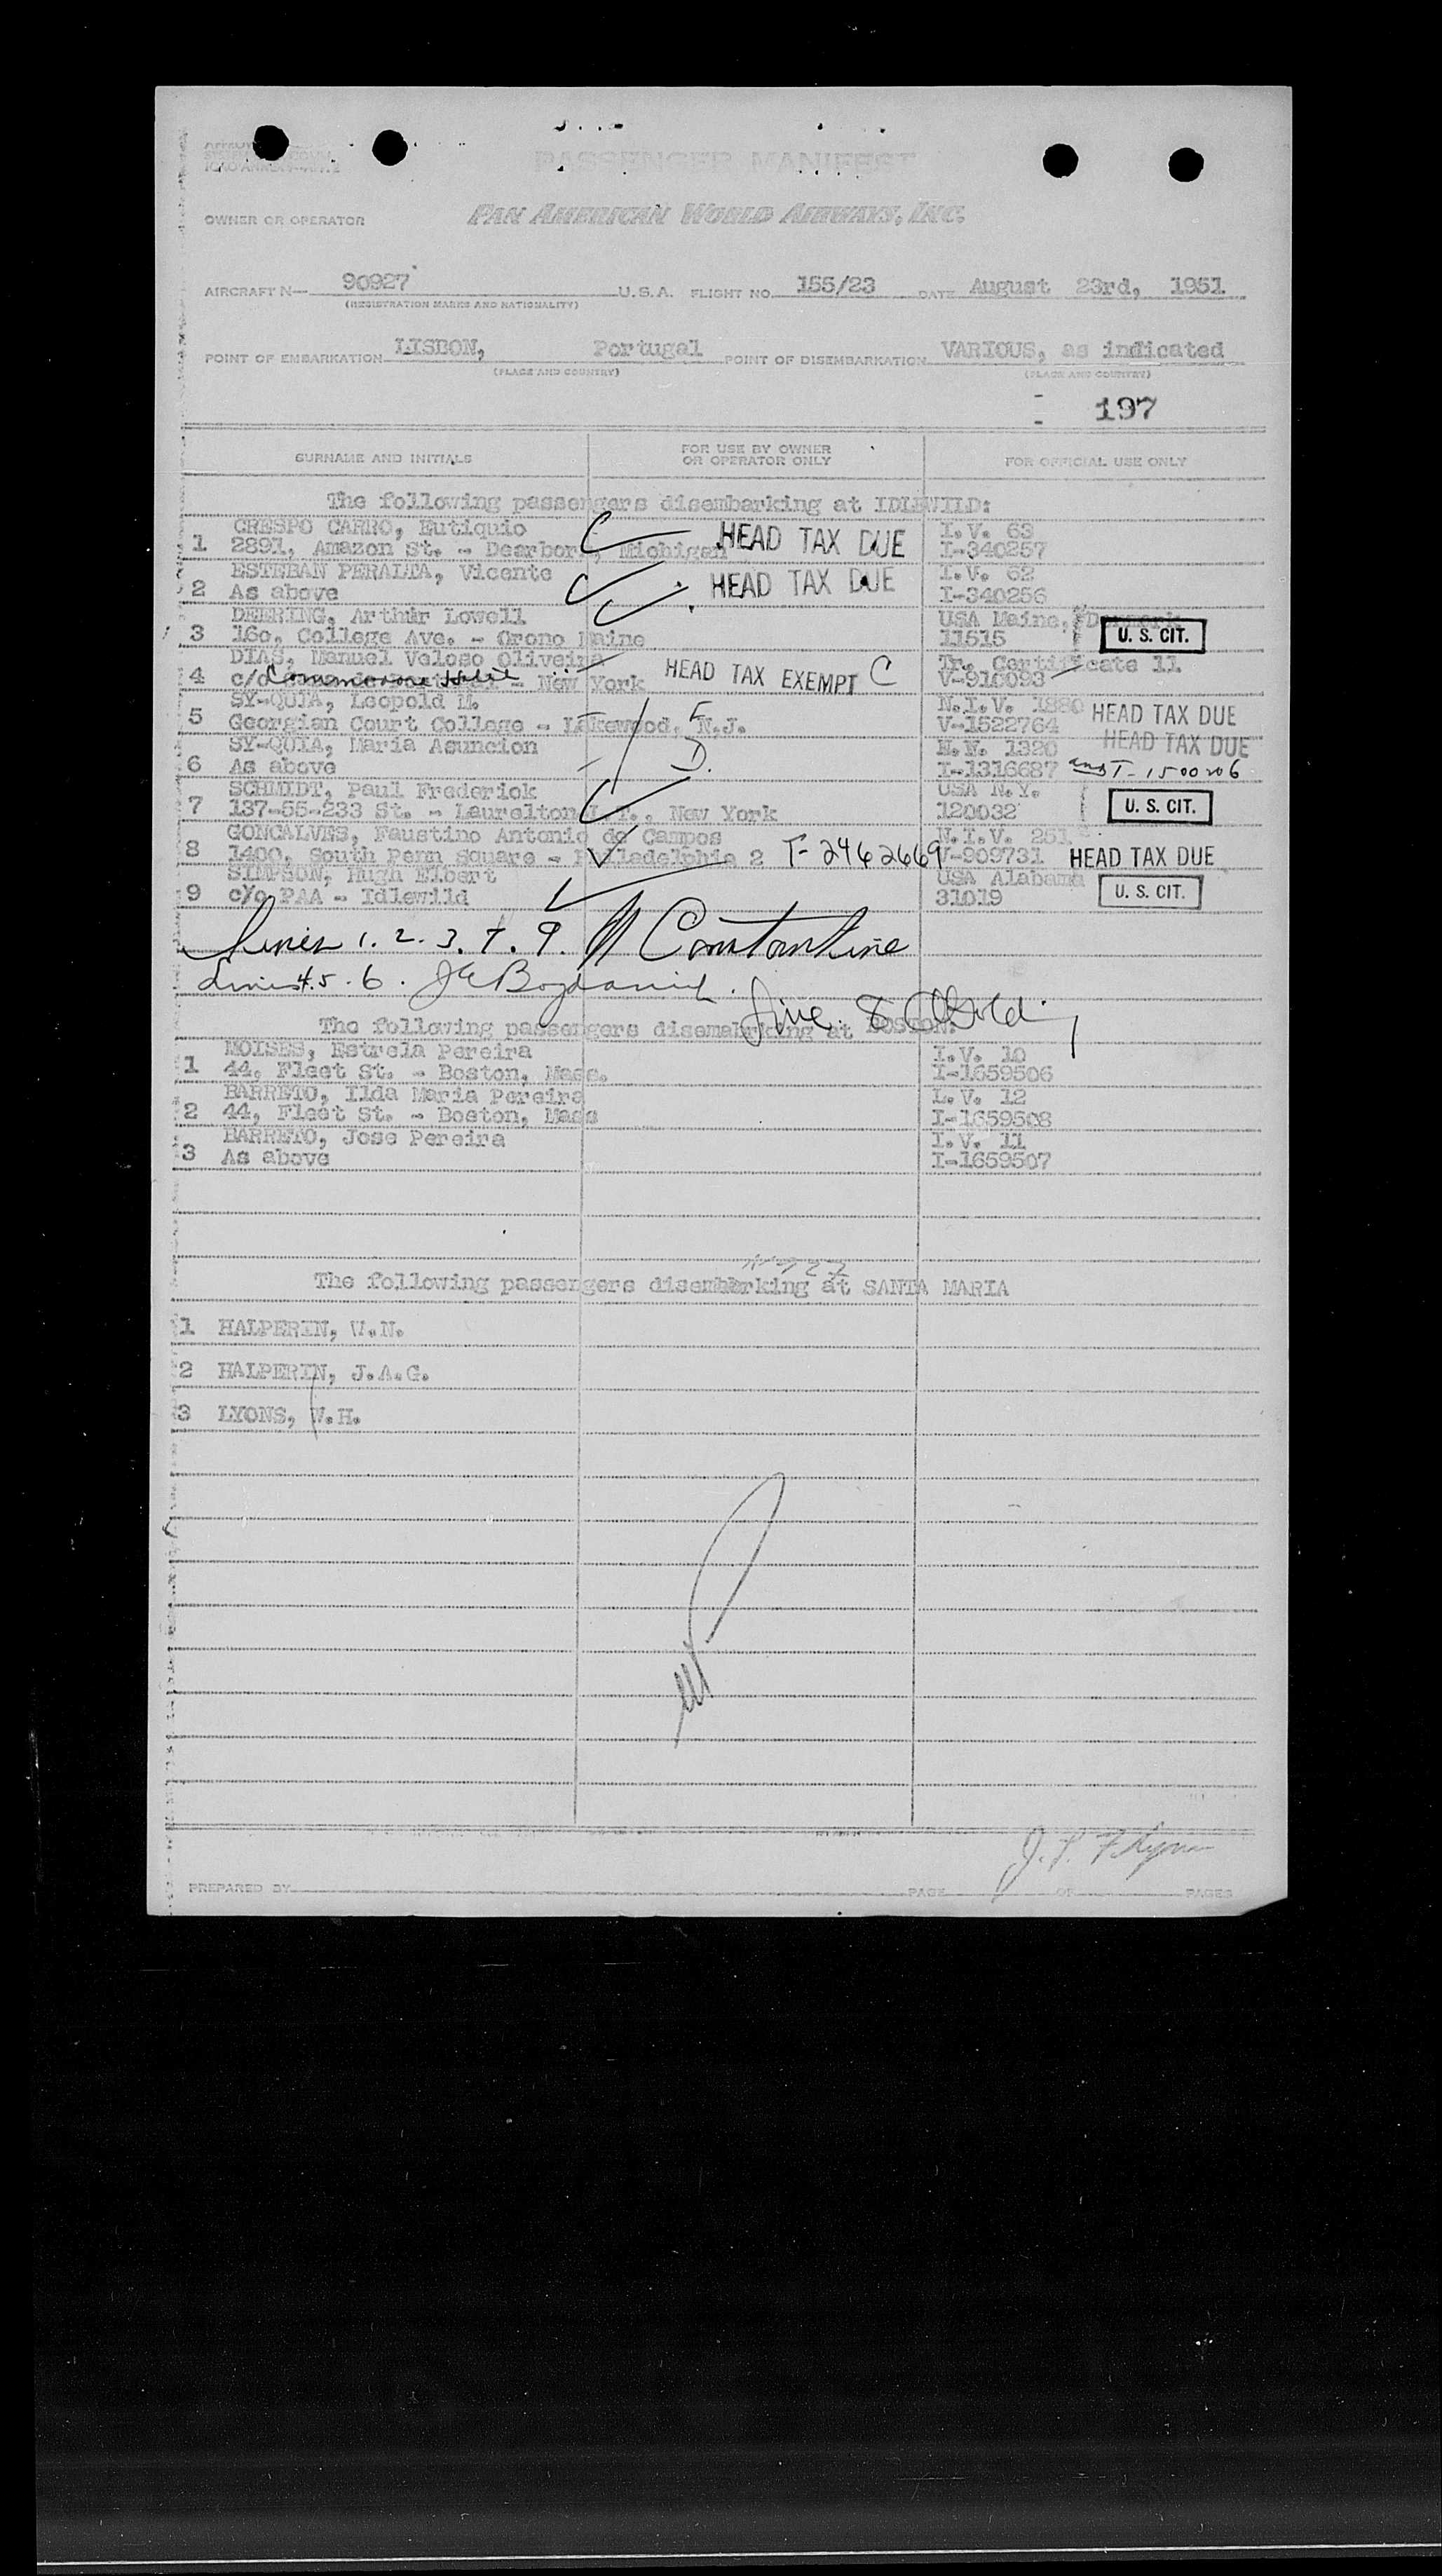 PASSENGER MANIFEST
OWNER OR OPERATOR PAN AMERICAN WORLD AIRWAYS, INC.
AIRCRAFT N— 90927 U.S.A. FLIGHT NO. 155/23 DATE August 23rd, 1951
(REGISTRATION MARKS AND NATIONALITY)
POINT OF EMBARKATION LISBON, Portugal POINT OF DISEMBARKATION VARIOUS, as indicated
(PLACE AND COUNTRY) (PLACE AND COUNTRY)
197
SURNAME AND INITIALS FOR USE BY OWNER OR OPERATOR ONLY FOR OFFICIAL USE ONLY
The following passengers disembarking at IDLEWILD:
CRESPO CARRO, Eutiquio I.V. 63
1 2891, Amazon St. - Dearborn, Michigan HEAD TAX DUE I-340257
ESTEBAN PERALTA, Vicente I.V. 62
2 As above HEAD TAX DUE I-340256
DEERING, Arthur Lowell USA Maine, Denmark
3 160, College Ave. - Orono Maine 11515 U. S. CIT.
DIAS, Manuel Veloso Oliveira Tr. Certificate 11
4 c/o Commodore Hotel - New York HEAD TAX EXEMPT C V-910093
SY-QUIA, Leopold M. N.I.V. 1880 HEAD TAX DUE
5 Georgian Court College - Lakewood, N.J. V-1522764
SY-QUIA, Maria Asuncion N.N. 1320 HEAD TAX DUE
6 As above D. I-1316687 and T-1500206
SCHMIDT, Paul Frederick USA N.Y.
7 137-55-233 St. - Laurelton L.I., New York 120032 U. S. CIT.
GONCALVES, Faustino Antonio de Campos N.I.V. 251
8 1400, South Penn Square - Philadelphia 2 T-2462669 V-909731 HEAD TAX DUE
SIMPSON, Hugh Elbert USA Alabama
9 c/o PAA - Idlewild 31019 U. S. CIT.
Lines 1. 2. 3. 7. 9. Constantine
Lines 4. 5. 6. JE
Line 8
The following passengers disemabrking at BOSTON:
MOISES, Estrela Pereira I.V. 10
1 44, Fleet St. - Boston, Mass. I-1659506
BARRETO, Ilda Maria Pereira I.V. 12
2 44, Fleet St. - Boston, Mass I-1659508
BARRETO, Jose Pereira I.V. 11
3 As above I-1659507
The following passengers disembarking at SANTA MARIA
1 HALPERIN, W.N.
2 HALPERIN, J.A.G.
3 LYONS, W.H.
PREPARED BY PAGE OF PAGES